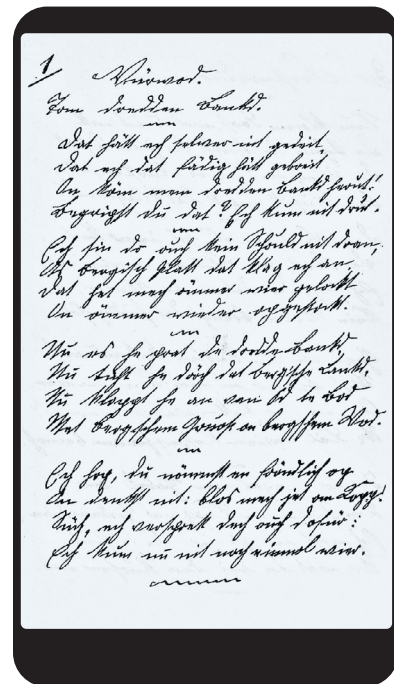 1
Vürwod.
Tom dredden Bankd.
Dat hätt ech selwer nit gedeit,
Dat ech dat fädig hät gebreit
On köm mem dredden Bankd herut!
Begripst du dat? Ech kum nit drut.
Ech sin do ouch kein Schould nit dran,
Os bergisch Platt dat klag ech an,
Dat het mech ömmer wier gelockt
On ömmer wieder opgestockt.
Nu es he prat de dredde Bankd,
Nu tüht he döch dat bergsche Lankd.
Nu kloppt he an van Öd te Bod
Met bergschem Grouß on bergschem Wod.
Ech hop, du nömmst en fröndlich op
On denkst nit: blos mech jet om Kopp.
Süch, ech versprek dech ouch dofür:
Ech kum nu nit noch einmol wier.